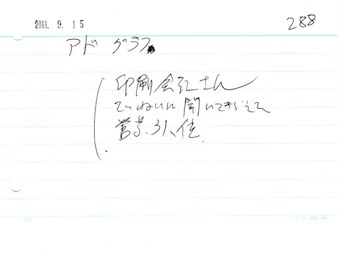 2011. 9. 15
288
アド グラフ
印刷会社さん
ていねいに聞いてもらえて
営業.3人位